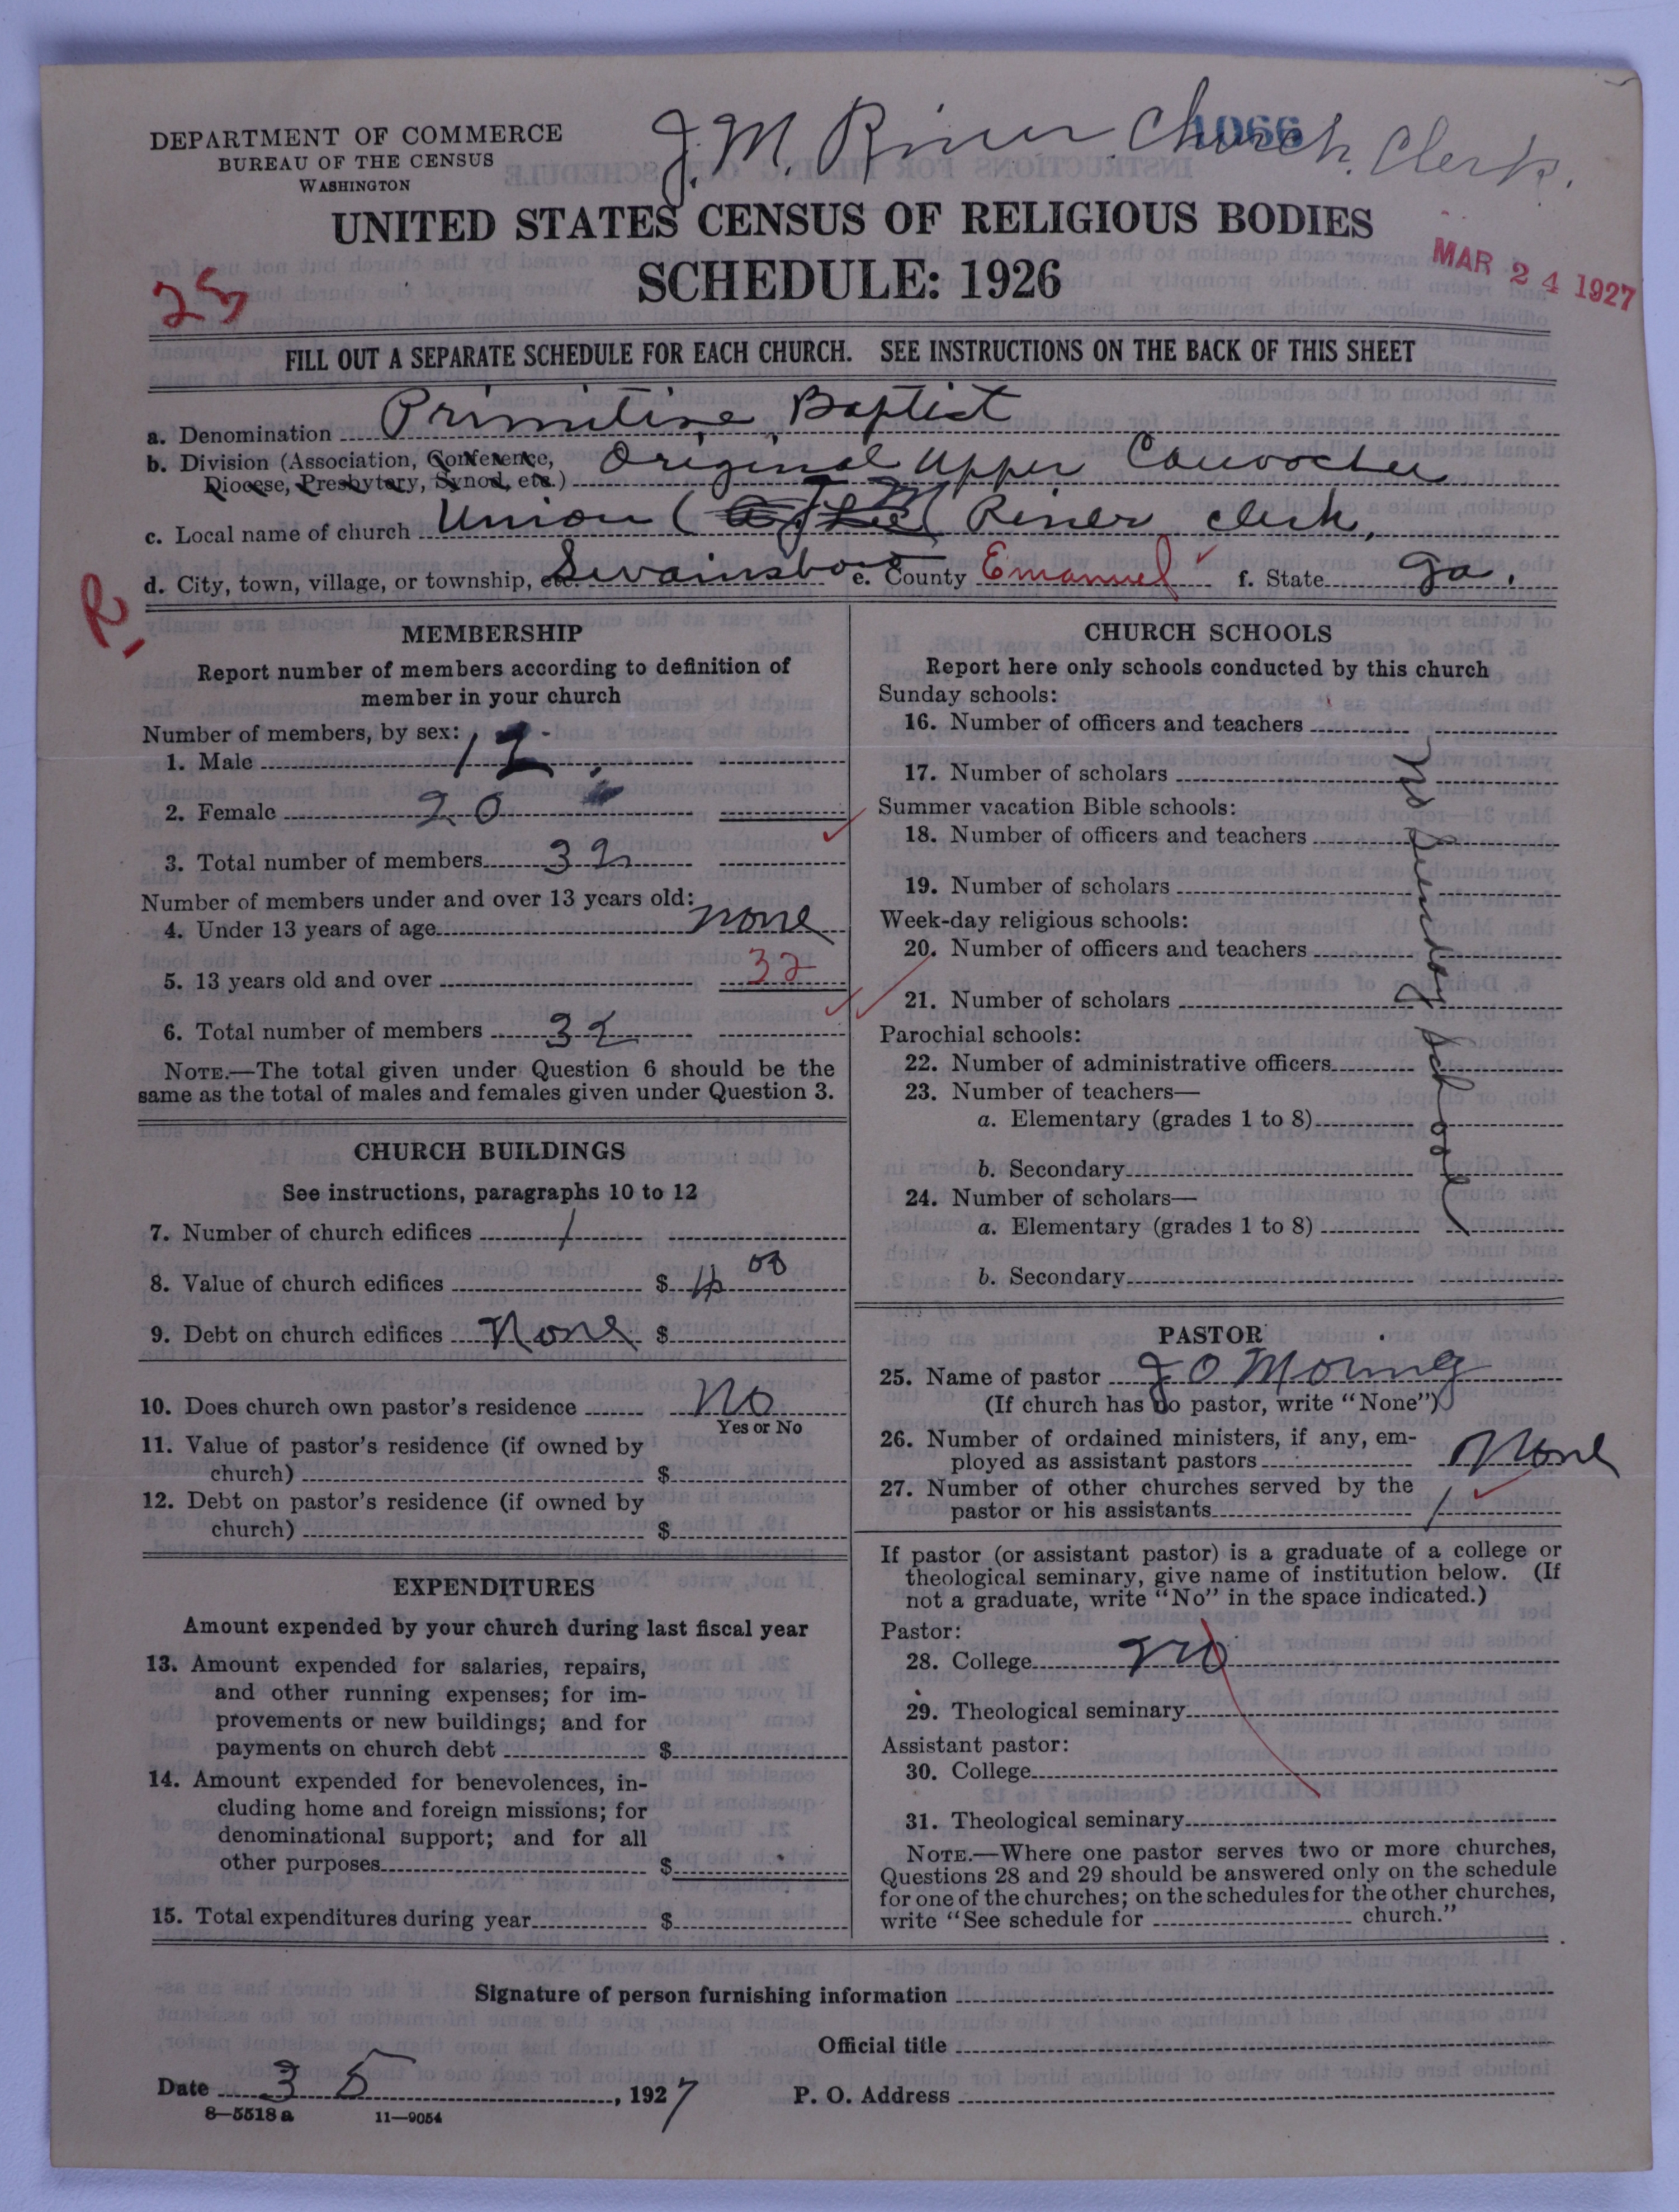 DEPARTMENT OF COMMERCE
BUREAU OF THE CENSUS
WASHINGTON
J. M. Riner Church Clerk.
1066
UNITED STATES CENSUS OF RELIGIOUS BODIES
SCHEDULE: 1926
MAR 24 1927
25
FILL OUT A SEPARATE SCHEDULE FOR EACH CHURCH. SEE INSTRUCTIONS ON THE BACK OF THIS SHEET
a. Denomination Primitive Baptist
b. Division (Association, Conference, Original Upper Canoochee
Diocese, Presbytery, Synod, etc.)
c. Local name of church Union ( J M Riner clerk,
d. City, town, village, or township, etc. Swainsboro e. County Emanuel f. State Ga.
R.
MEMBERSHIP
Report number of members according to definition of
member in your church
Number of members, by sex:
1. Male 12
2. Female 20
3. Total number of members 32
Number of members under and over 13 years old:
4. Under 13 years of age none
5. 13 years old and over 32
6. Total number of members 32
NOTE.—The total given under Question 6 should be the
same as the total of males and females given under Question 3.
CHURCH BUILDINGS
See instructions, paragraphs 10 to 12
7. Number of church edifices 1
8. Value of church edifices $
9. Debt on church edifices None $
10. Does church own pastor's residence No
Yes or No
11. Value of pastor's residence (if owned by
church) $
12. Debt on pastor's residence (if owned by
church) $
EXPENDITURES
Amount expended by your church during last fiscal year
13. Amount expended for salaries, repairs,
and other running expenses; for im-
provements or new buildings; and for
payments on church debt $
14. Amount expended for benevolences, in-
cluding home and foreign missions; for
denominational support; and for all
other purposes $
15. Total expenditures during year $
CHURCH SCHOOLS
Report here only schools conducted by this church
Sunday schools:
16. Number of officers and teachers
17. Number of scholars
Summer vacation Bible schools:
18. Number of officers and teachers
19. Number of scholars
Week-day religious schools:
20. Number of officers and teachers
21. Number of scholars
Parochial schools:
22. Number of administrative officers
23. Number of teachers—
a. Elementary (grades 1 to 8)
b. Secondary
24. Number of scholars—
a. Elementary (grades 1 to 8)
b. Secondary
No Sunday School
PASTOR
25. Name of pastor J O Moring
(If church has no pastor, write "None")
26. Number of ordained ministers, if any, em-
ployed as assistant pastors None
27. Number of other churches served by the
pastor or his assistants 1
If pastor (or assistant pastor) is a graduate of a college or
theological seminary, give name of institution below. (If
not a graduate, write "No" in the space indicated.)
Pastor:
28. College no
29. Theological seminary
Assistant pastor:
30. College
31. Theological seminary
NOTE.—Where one pastor serves two or more churches,
Questions 28 and 29 should be answered only on the schedule
for one of the churches; on the schedules for the other churches,
write "See schedule for church."
Signature of person furnishing information
Official title
Date 3 5, 1927 P. O. Address
8—5518 a 11—9054